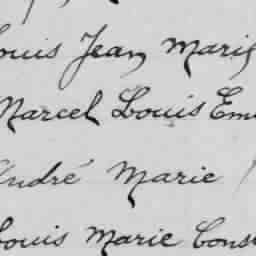 Louis Jean Marie
Marcel Louis Em
André Marie
Louis Marie Const